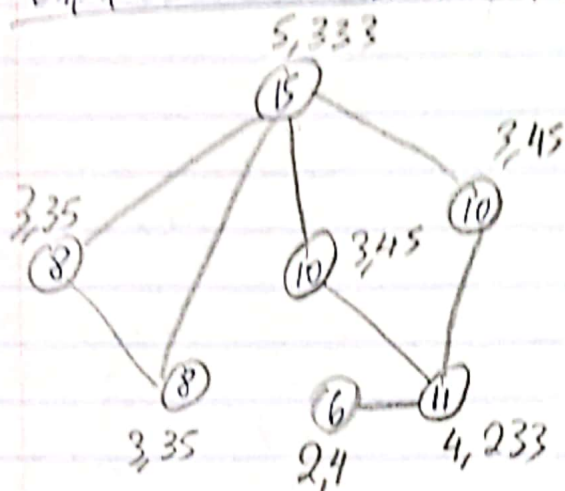 5,333
15
3,45
10
3,35
8
10
3,45
8
3,35
6
2,4
11
4,233